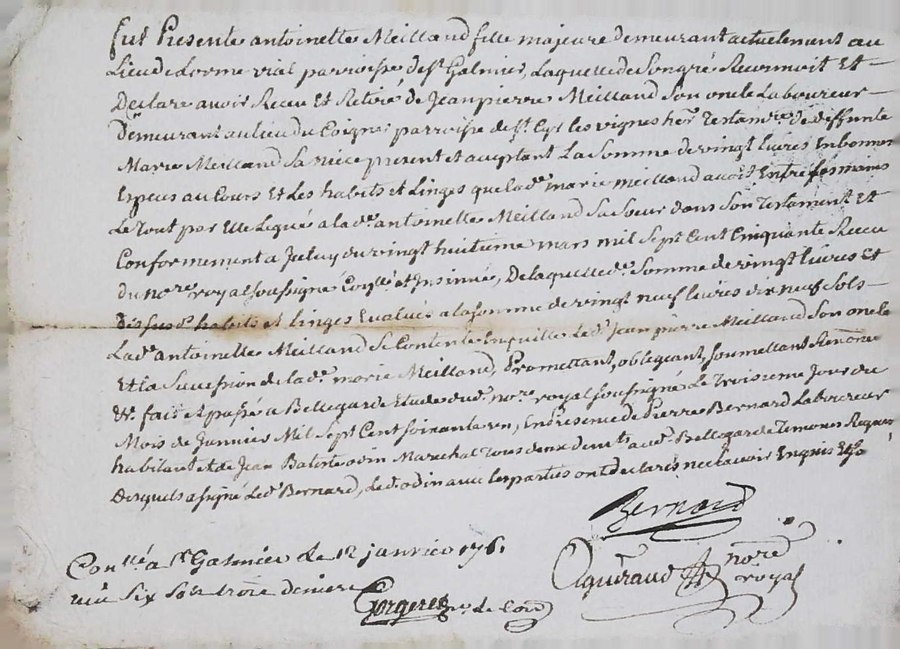 fut Presente antoinette Meilland fille majeure demeurant actuelement au
Lieu de Lorme vial parroisse de St. Galmier, Laquelle de Son gré Reconnoit Et
Declare avoir Receu Et Retiré de Jean pierre Meilland Son oncle Laboureur
Demeurant au lieu du parroisse de St. Cyr les vignes her. Testamre. de deffunte
Marie Meilland Sa niece present et acceptant La Somme de vingt livres En bonnes
Especes au Cours Et Les habits et Linges que lade. marie meilland avoit Entre ses mains
Le Tout par Elle Legué a lade. antoinette Meilland Sa Soeur dans Son Testament et
Conformement a Iceluy du vingt huitieme mars mil Sept Cent Cinquante Receu
du nore. royal soussigné Conllé et Insinué, De laquelle de. Somme de vingt livres Et
Des susd. habits et linges Evalués a la somme de vingt neuf livres dix neuf Sols
Lade. antoinette Meilland Se Contente En quitte Led. Jean pierre Meilland Son oncle
Et la Succession de lade. marie Meilland, Promettant, obligeant, soumettant Renonce
&c. fait et passé a Bellegarde Etude dud. nore. royal soussigné Le Troisieme Jour du
Mois de Janvier Mil Sept Cent soixante un, En presence de Pierre Bernard Laboureur
habitant et de Jean Batiste odin Marechal Tous deux demts. aud. Bellegarde Temoins Requis
Desquels a signé Led. Bernard, Led. odin avec les parties ont declarés ne scavoir Enquis Et so
Bernard
Conllé a St Galmier le 12 janvier 1761
reçu six sols trois deniers
nore royal